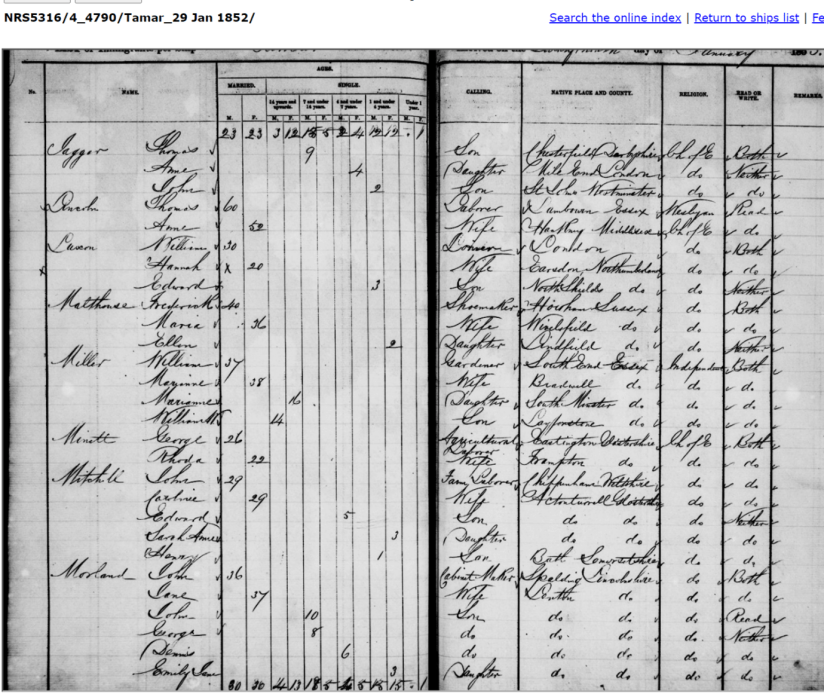 NRS5316/4_4790/Tamar_29 Jan 1852/ Search the online index | Return to ships list | Fe
January 185
AGES.
MARRIED. SINGLE.
No. NAME. 14 years and upwards. 7 and under 14 years. 4 and under 7 years. 1 and under 4 years. Under 1 year. CALLING. NATIVE PLACE AND COUNTY. RELIGION. READ OR WRITE. REMARKS.
M. F. M. F. M. F. M. F. M. F. M. F.
23 23 3 12 5 2 4 12 12 - 1
Jaggar Thomas 9 Son Chesterfield Derbyshire Ch of E Both
Anne 4 Daughter Mile End London do Neither
John 2 Son St Johns Westminster do do
Lincoln Thomas 60 Laborer Lambourn Essex Wesleyan Read
Anne 52 Wife Middlesex Ch of E do
William 30 London do Both
x Hannah x 20 Wife Earsdon Northumberland do do
Edward 3 Son North Shields do do Neither
Malthouse Frederick 40 Shoemaker Horsham Sussex do Both
Maria 36 Wife do do do
Ellen 2 Daughter Lindfield do do Neither
Miller William 37 Gardener South End Essex Independent Both
38 Wife Bradwell do do do
Marianne 16 Daughter South Minster do do do
William 14 Son Laytonstone do do do
Minett George 26 Agricultural Laborer Eastington Ch of E Both
Rhoda 22 Wife Frampton do do do
Mitchell John 29 Farm Laborer Chippenham Wiltshire do do
Caroline 29 Wife do do
Edward 5 Son do do do Neither
Sarah Anne 3 Daughter do do do do
Henry 1 Son Bath Somersetshire do do
Morland John 36 Cabinet Maker Spalding Lincolnshire do Both
Jane 37 Wife Louth do do do
John 10 Son do do do Read
George 8 do do do do Neither
Dennis 6 do do do do do
Emily Jane 3 Daughter do do do do
30 30 4 13 5 5 15 - 1